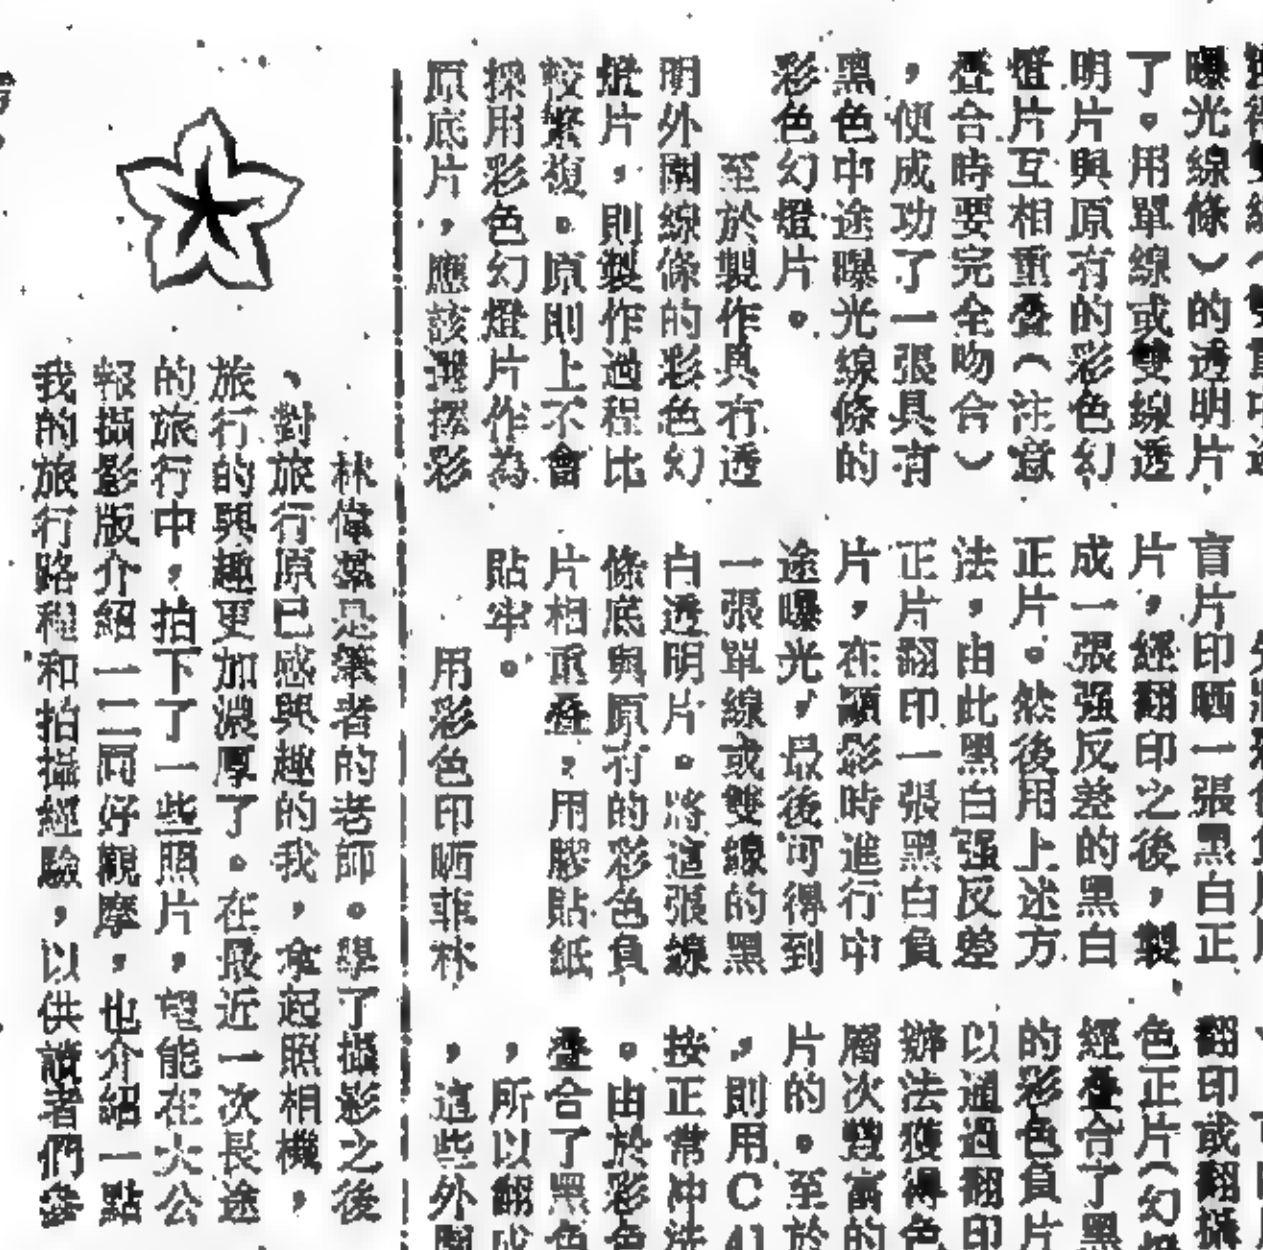 曝光線條）的透明片
了。用單線或雙線透
明片與原有的彩色幻
燈片互相重叠（注意
叠合時要完全吻合）
，便成功了一張具有
黑色中途曝光線條的
彩色幻燈片。
至於製作具有透
明外圍線條的彩色幻
燈片，則製作過程比
較繁複。原則上不會
採用彩色幻燈片作為
原底片，應該選擇彩
盲片印晒一張黑白正
片，經翻印之後，製
成一張强反差的黑白
正片。然後用上述方
法，由此黑白强反差
正片翻印一張黑白負
片，在顯影時進行中
途曝光，最後可得到
一張單線或雙線的黑
白透明片。將這張線
條底與原有的彩色負
片相重叠，用膠貼紙
貼牢。
用彩色印晒菲林
翻印或翻攝
色正片（幻
經叠合了黑
的彩色負片
以通過翻印
辦法獲得色
層次豐富的
片的。至於
，則用C41
按正常冲洗
。由於彩色
叠合了黑色
，所以翻成
，這些外圍
林偉是筆者的老師。學了攝影之後
、對旅行原已感興趣的我，拿起照相機，
旅行的興趣更加濃厚了。在最近一次長途
的旅行中，拍下了一些照片，望能在大公
報攝影版介紹一二同好觀摩，也介紹一點
我的旅行路程和拍攝經驗，以供讀者們參